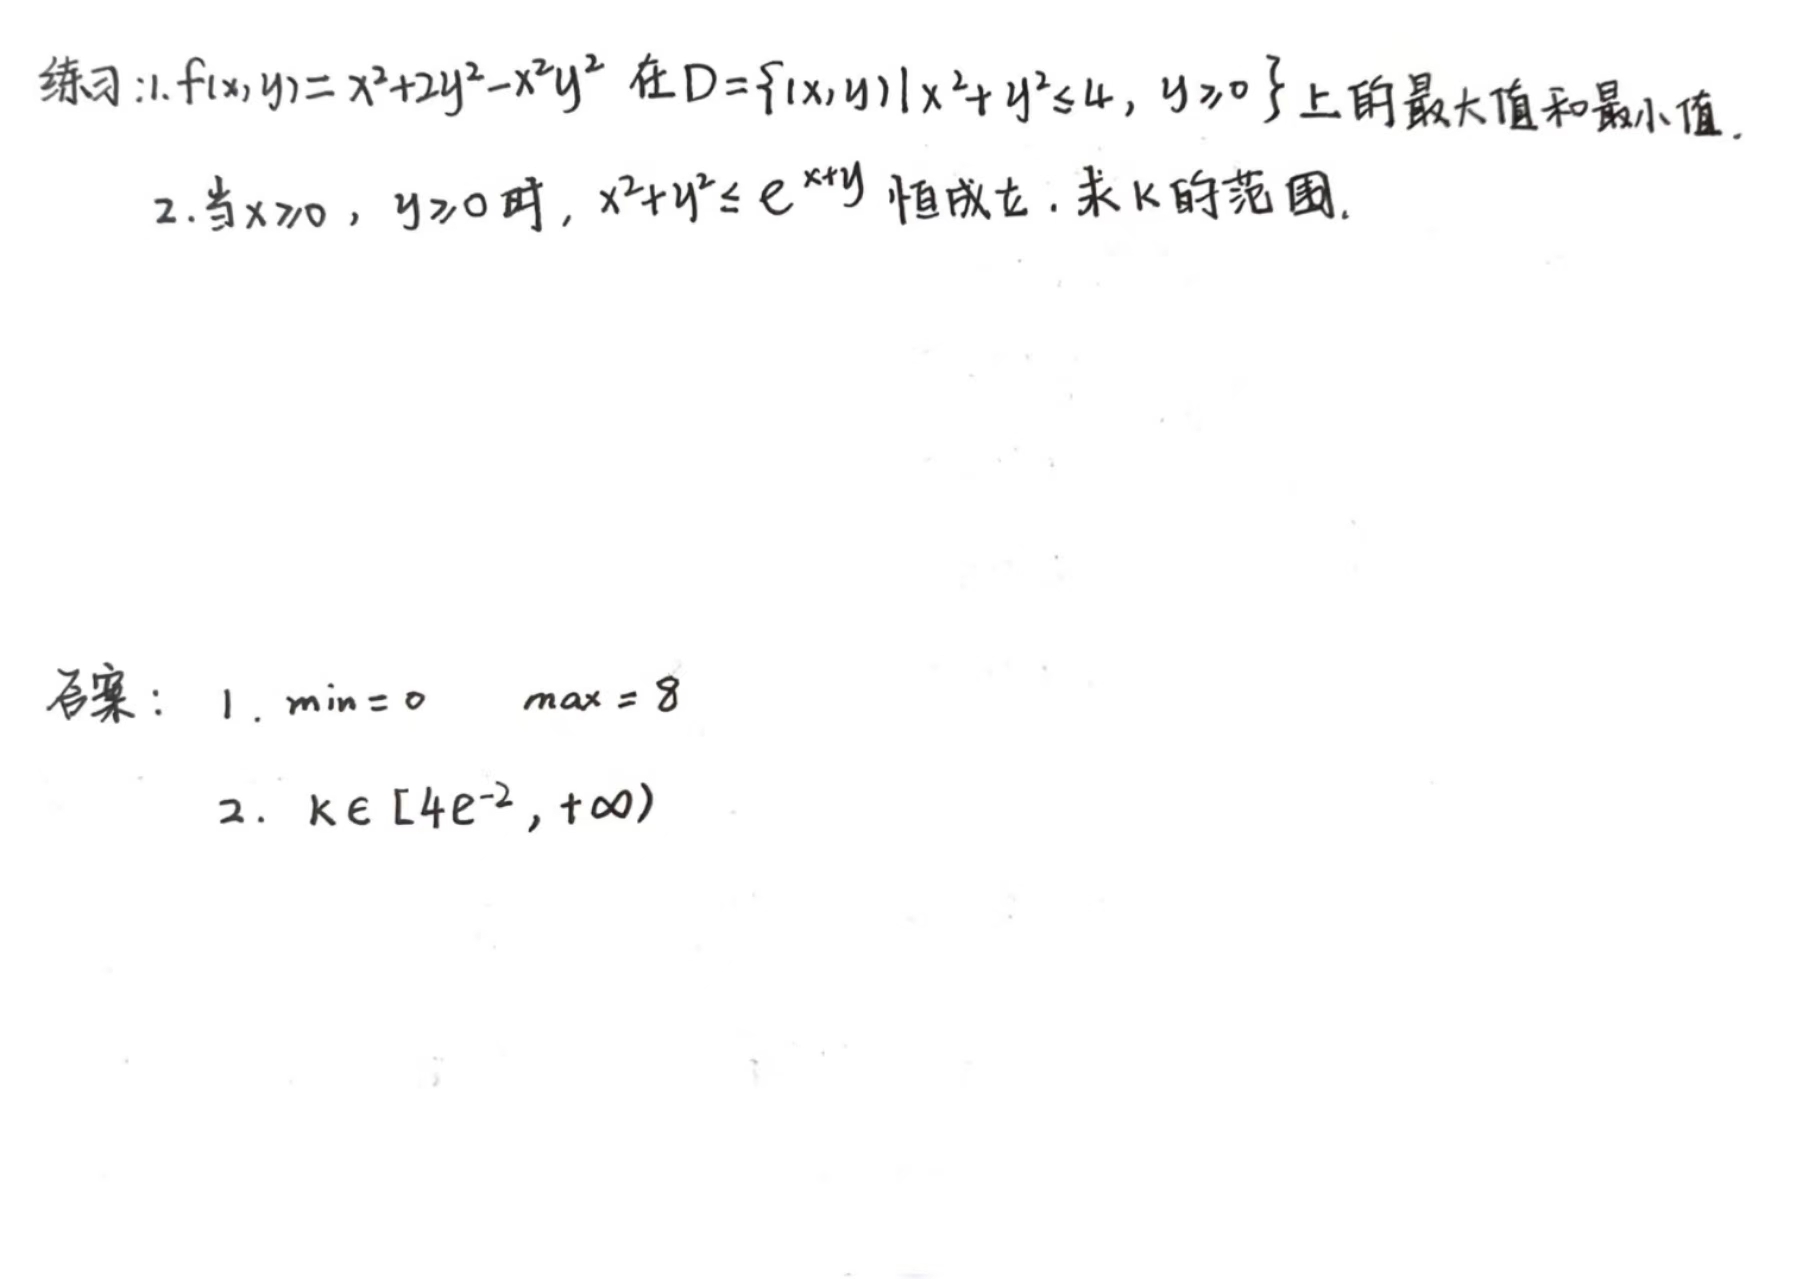 练习:1. f(x,y)=x²+2y²-x²y² 在D={(x,y)|x²+y²≤4, y≥0}上的最大值和最小值.
2.当x≥0, y≥0时, x²+y²≤e^{x+y} 恒成立.求K的范围.
答案: 1. min=0 max=8
2. K∈[4e⁻², +∞)